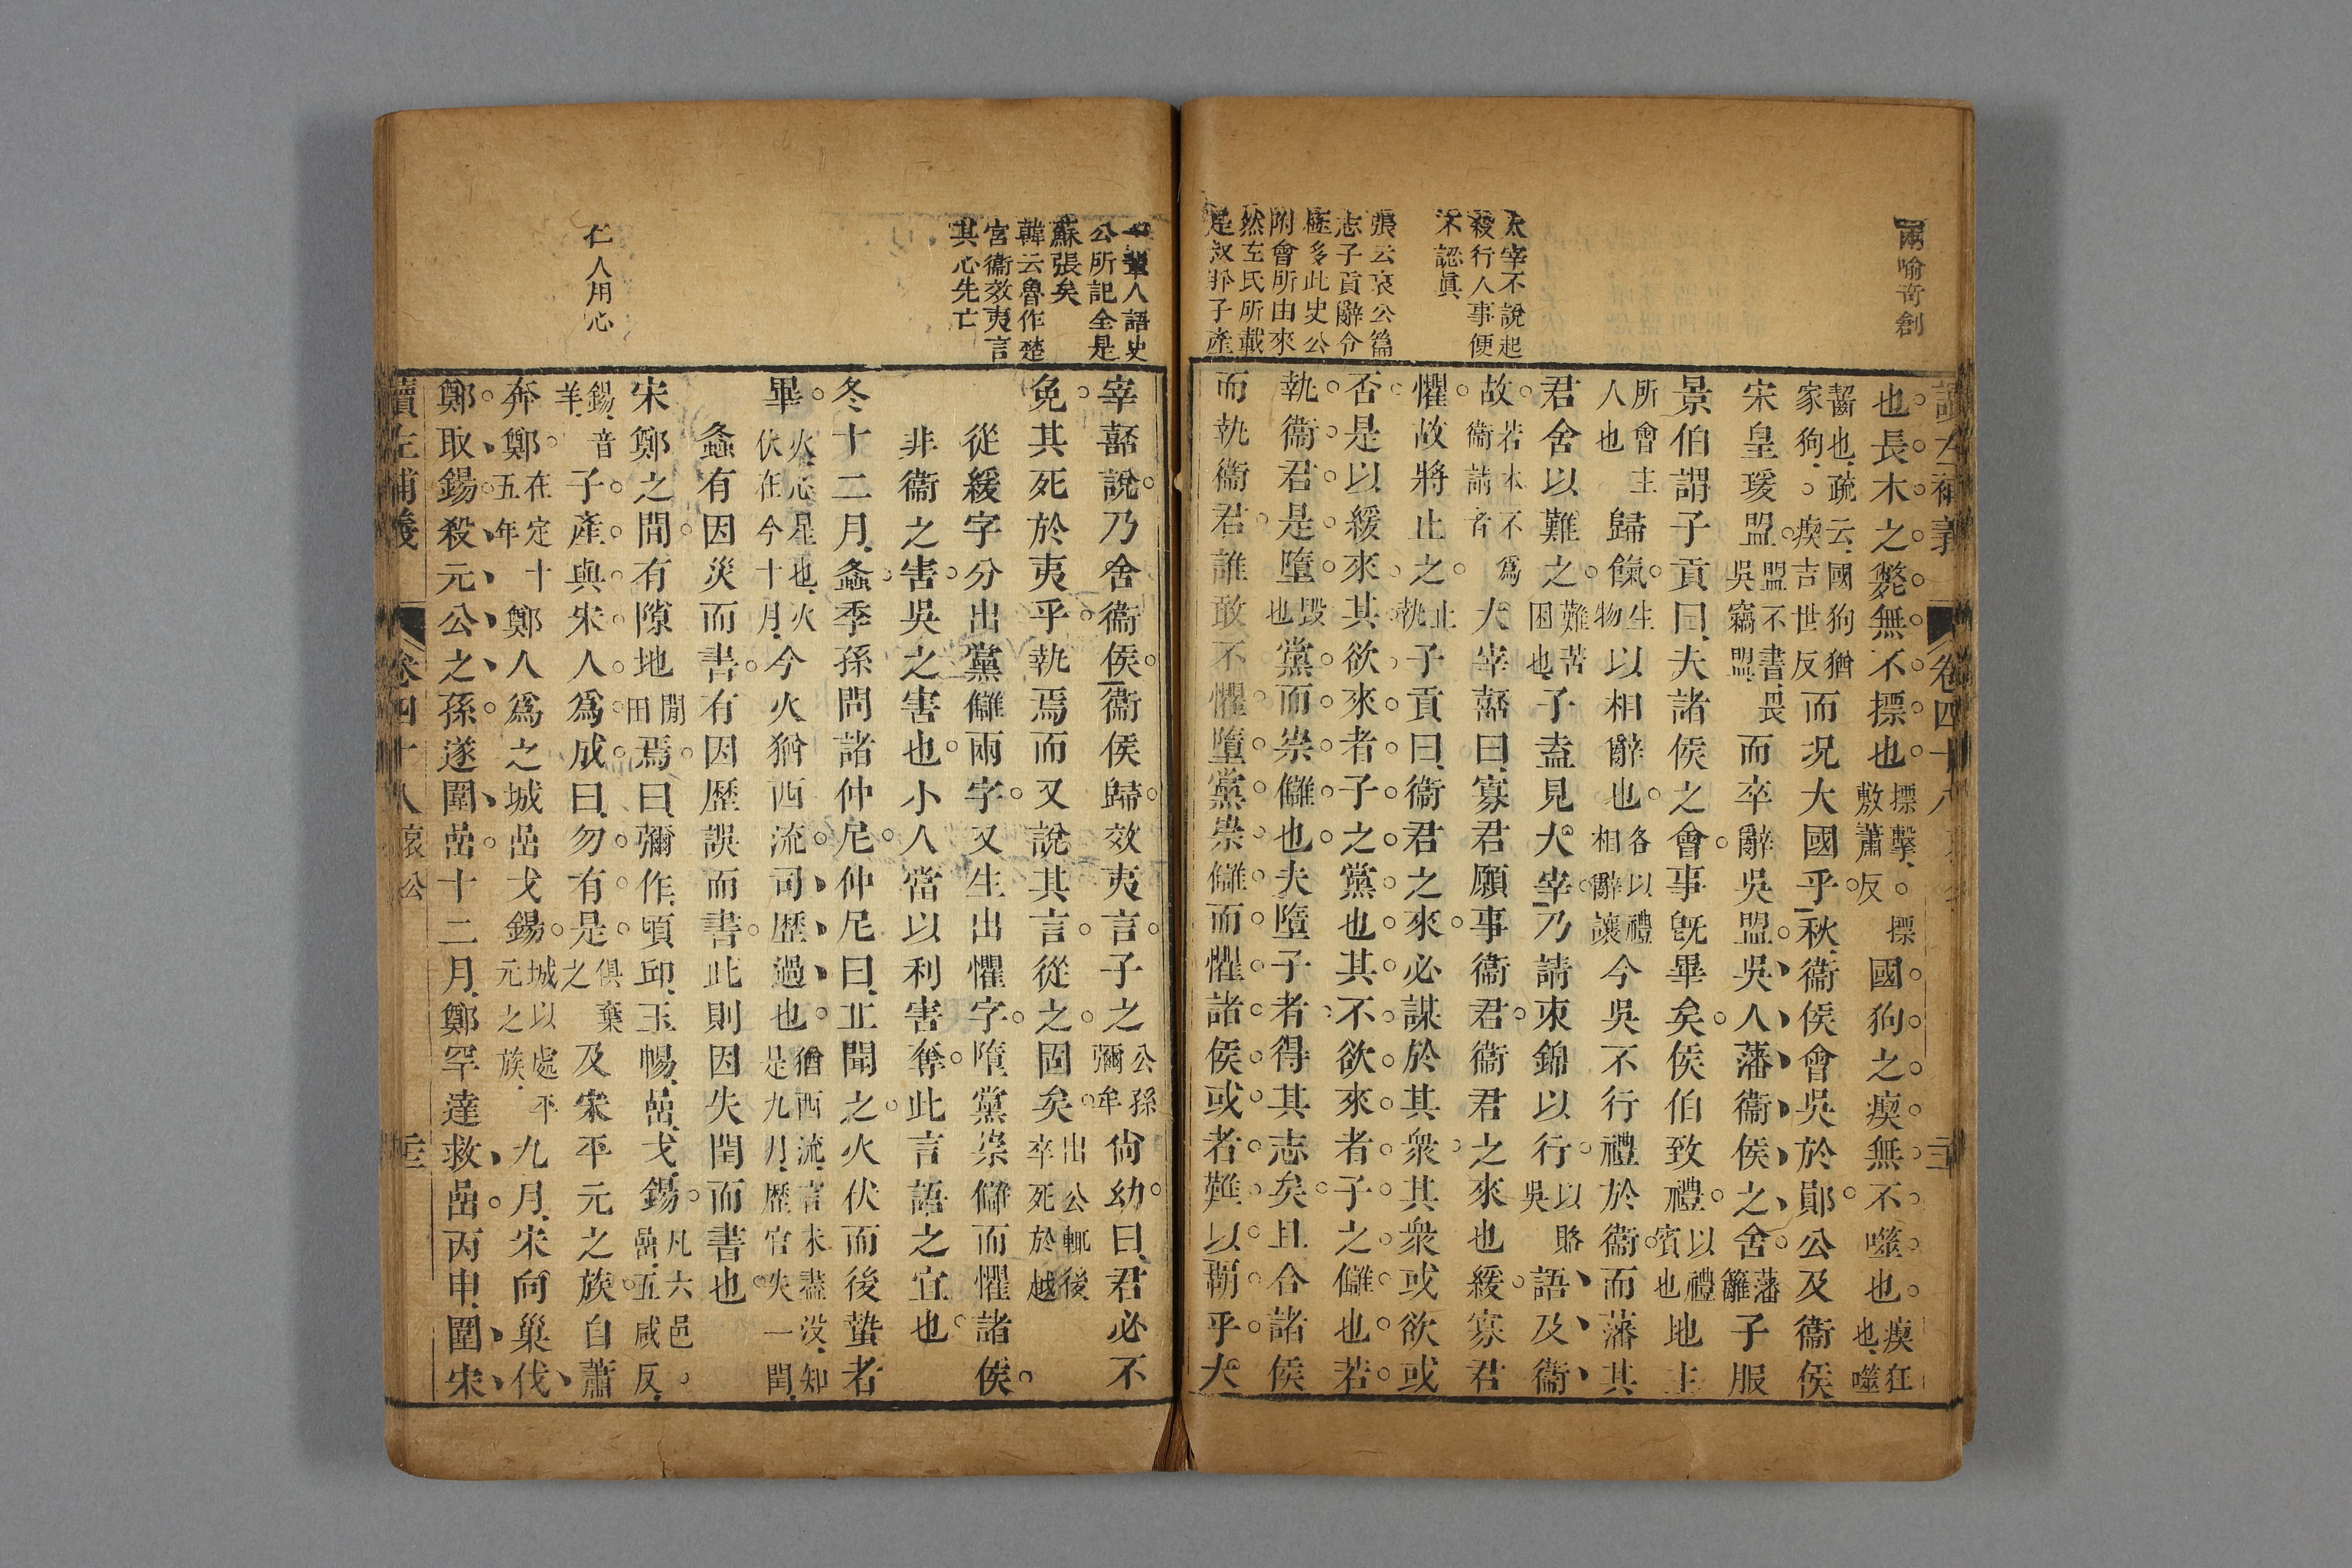 兩喻奇創
太宰不說起
殺行人事便
不認眞
張云哀公篇
志子貢辭令
極多此史公
附會所由來
然左氏所載
是
讀左補義 卷四十八
也長木之斃無不摽也摽擊敷蕭反摽國狗之瘈無不噬也瘈狂也噬
齧也疏云國狗猶家狗瘈吉世反而況大國乎秋衞侯會吳於鄖公及衞侯
宋皇瑗盟盟不書畏吳竊盟而卒辭吳盟吳人藩衞侯之舍藩籬子服
景伯謂子貢曰夫諸侯之會事旣畢矣侯伯致禮以禮賓也地主
所會主人也歸餼生物以相辭也各以禮相辭讓今吳不行禮於衞而藩其
君舍以難之難苦困也子盍見大宰乃請束錦以行以賂吳語及衞
故若本不爲衞請者大宰嚭曰寡君願事衞君衞君之來也緩寡君
懼故將止之止執子貢曰衞君之來必謀於其衆其衆或欲或
否是以緩來其欲來者子之黨也其不欲來者子之讎也若
執衞君是墮毀也黨而崇讎也夫墮子者得其志矣且合諸侯
而執衞君誰敢不懼墮黨崇讎而懼諸侯或者難以霸乎大
人語史
公所記全是
蘇張矣
韓云魯作楚
宮衞效夷言
其心先亡
仁人用心
宰嚭說乃舍衞侯衞侯歸效夷言子之公孫彌牟尙幼曰君必不
免其死於夷乎執焉而又說其言從之固矣出公輒後卒死於越
從緩字分出黨讎兩字又生出懼字墮黨崇讎而懼諸侯
非衞之害吳之害也小人當以利害奪此言語之宜也
冬十二月螽季孫問諸仲尼仲尼曰丘聞之火伏而後蟄者
畢火心星也火伏在今十月今火猶西流司歷過也猶西流言未盡沒知是九月歷官失一閏
螽有因災而書有因歷誤而書此則因失閏而書也
宋鄭之間有隙地閒田焉曰彌作頃邱玉暢嵒戈錫凡六邑嵒五咸反
錫音羊子產與宋人爲成曰勿有是俱棄之及宋平元之族自蕭
奔鄭在定十五年鄭人爲之城嵒戈錫城以處平元之族九月宋向巢伐
鄭取錫殺元公之孫遂圍嵒十二月鄭罕達救嵒丙申圍宋
讀左補義 卷四十八 哀公